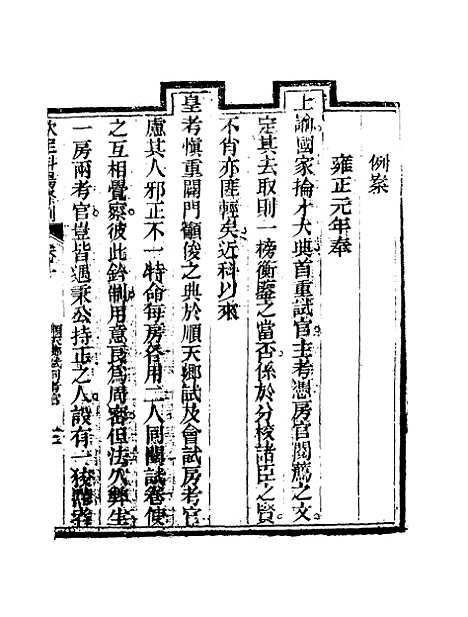 例案
雍正元年奉
上諭國家掄才大典首重試官主考憑房官閱薦之文
定其去取則一榜衡鑒之當否係於分校諸臣之賢
不肖亦匪輕矣近科以來
皇考慎重闢門籲俊之典於順天鄉試及會試房考官
慮其人邪正不一特命每房各用二人同閱試卷使
之互相覺察彼此鈐制用意良為周密但法久弊生
一房兩考官豈皆遇秉公持正之人設有一狡獪者
欽定科場條例